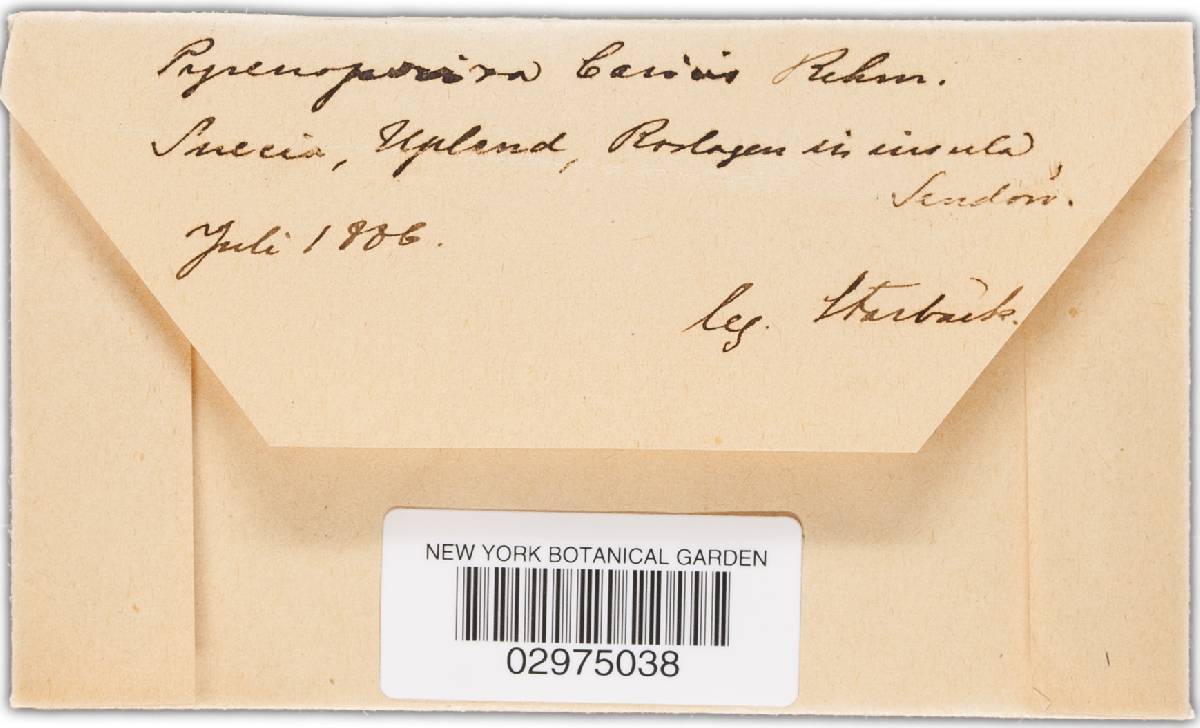 Pyrenopeziza Caricis Rehm.
Suecia, Upland, Roslagen in insula
Sendön.
Juli 1886.
leg. Starbäck.
NEW YORK BOTANICAL GARDEN
02975038